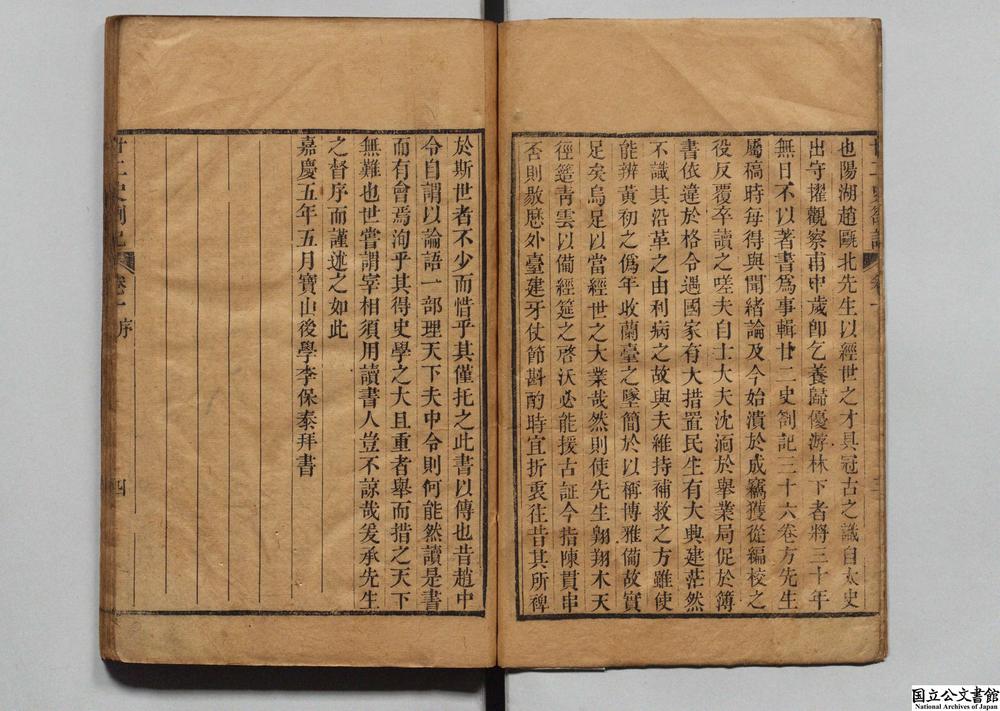 也陽湖趙甌北先生以經世之才具冠古之識自太史
出守擢觀察甫中歲卽乞養歸優游林下者將三十年
無日不以著書爲事輯廿二史劄記三十六卷方先生
屬稿時每得與聞緒論及今始潰於成竊獲從編校之
役反覆卒讀之嗟夫自士大夫沈湎於舉業局促於簿
書依違於格令遇國家有大措置民生有大興建茫然
不識其沿革之由利病之故與夫維持補救之方雖使
能辨黃初之僞年收蘭臺之墜簡於以稱博雅備故實
足矣烏足以當經世之大業哉然則使先生翺翔木天
徑簉青雲以備經筵之啓沃必能援古証今指陳貫串
否則敭歷外臺建牙仗節斟酌時宜折衷往昔其所裨
於斯世者不少而惜乎其僅托之此書以傳也昔趙中
令自謂以論語一部理天下夫中令則何能然讀是書
而有會焉洵乎其得史學之大且重者舉而措之天下
無難也世嘗謂宰相須用讀書人豈不諒哉爰承先生
之督序而謹述之如此
嘉慶五年五月寶山後學李保泰拜書
廿二史劄記 卷一序 四
国立公文書館
National Archives of Japan